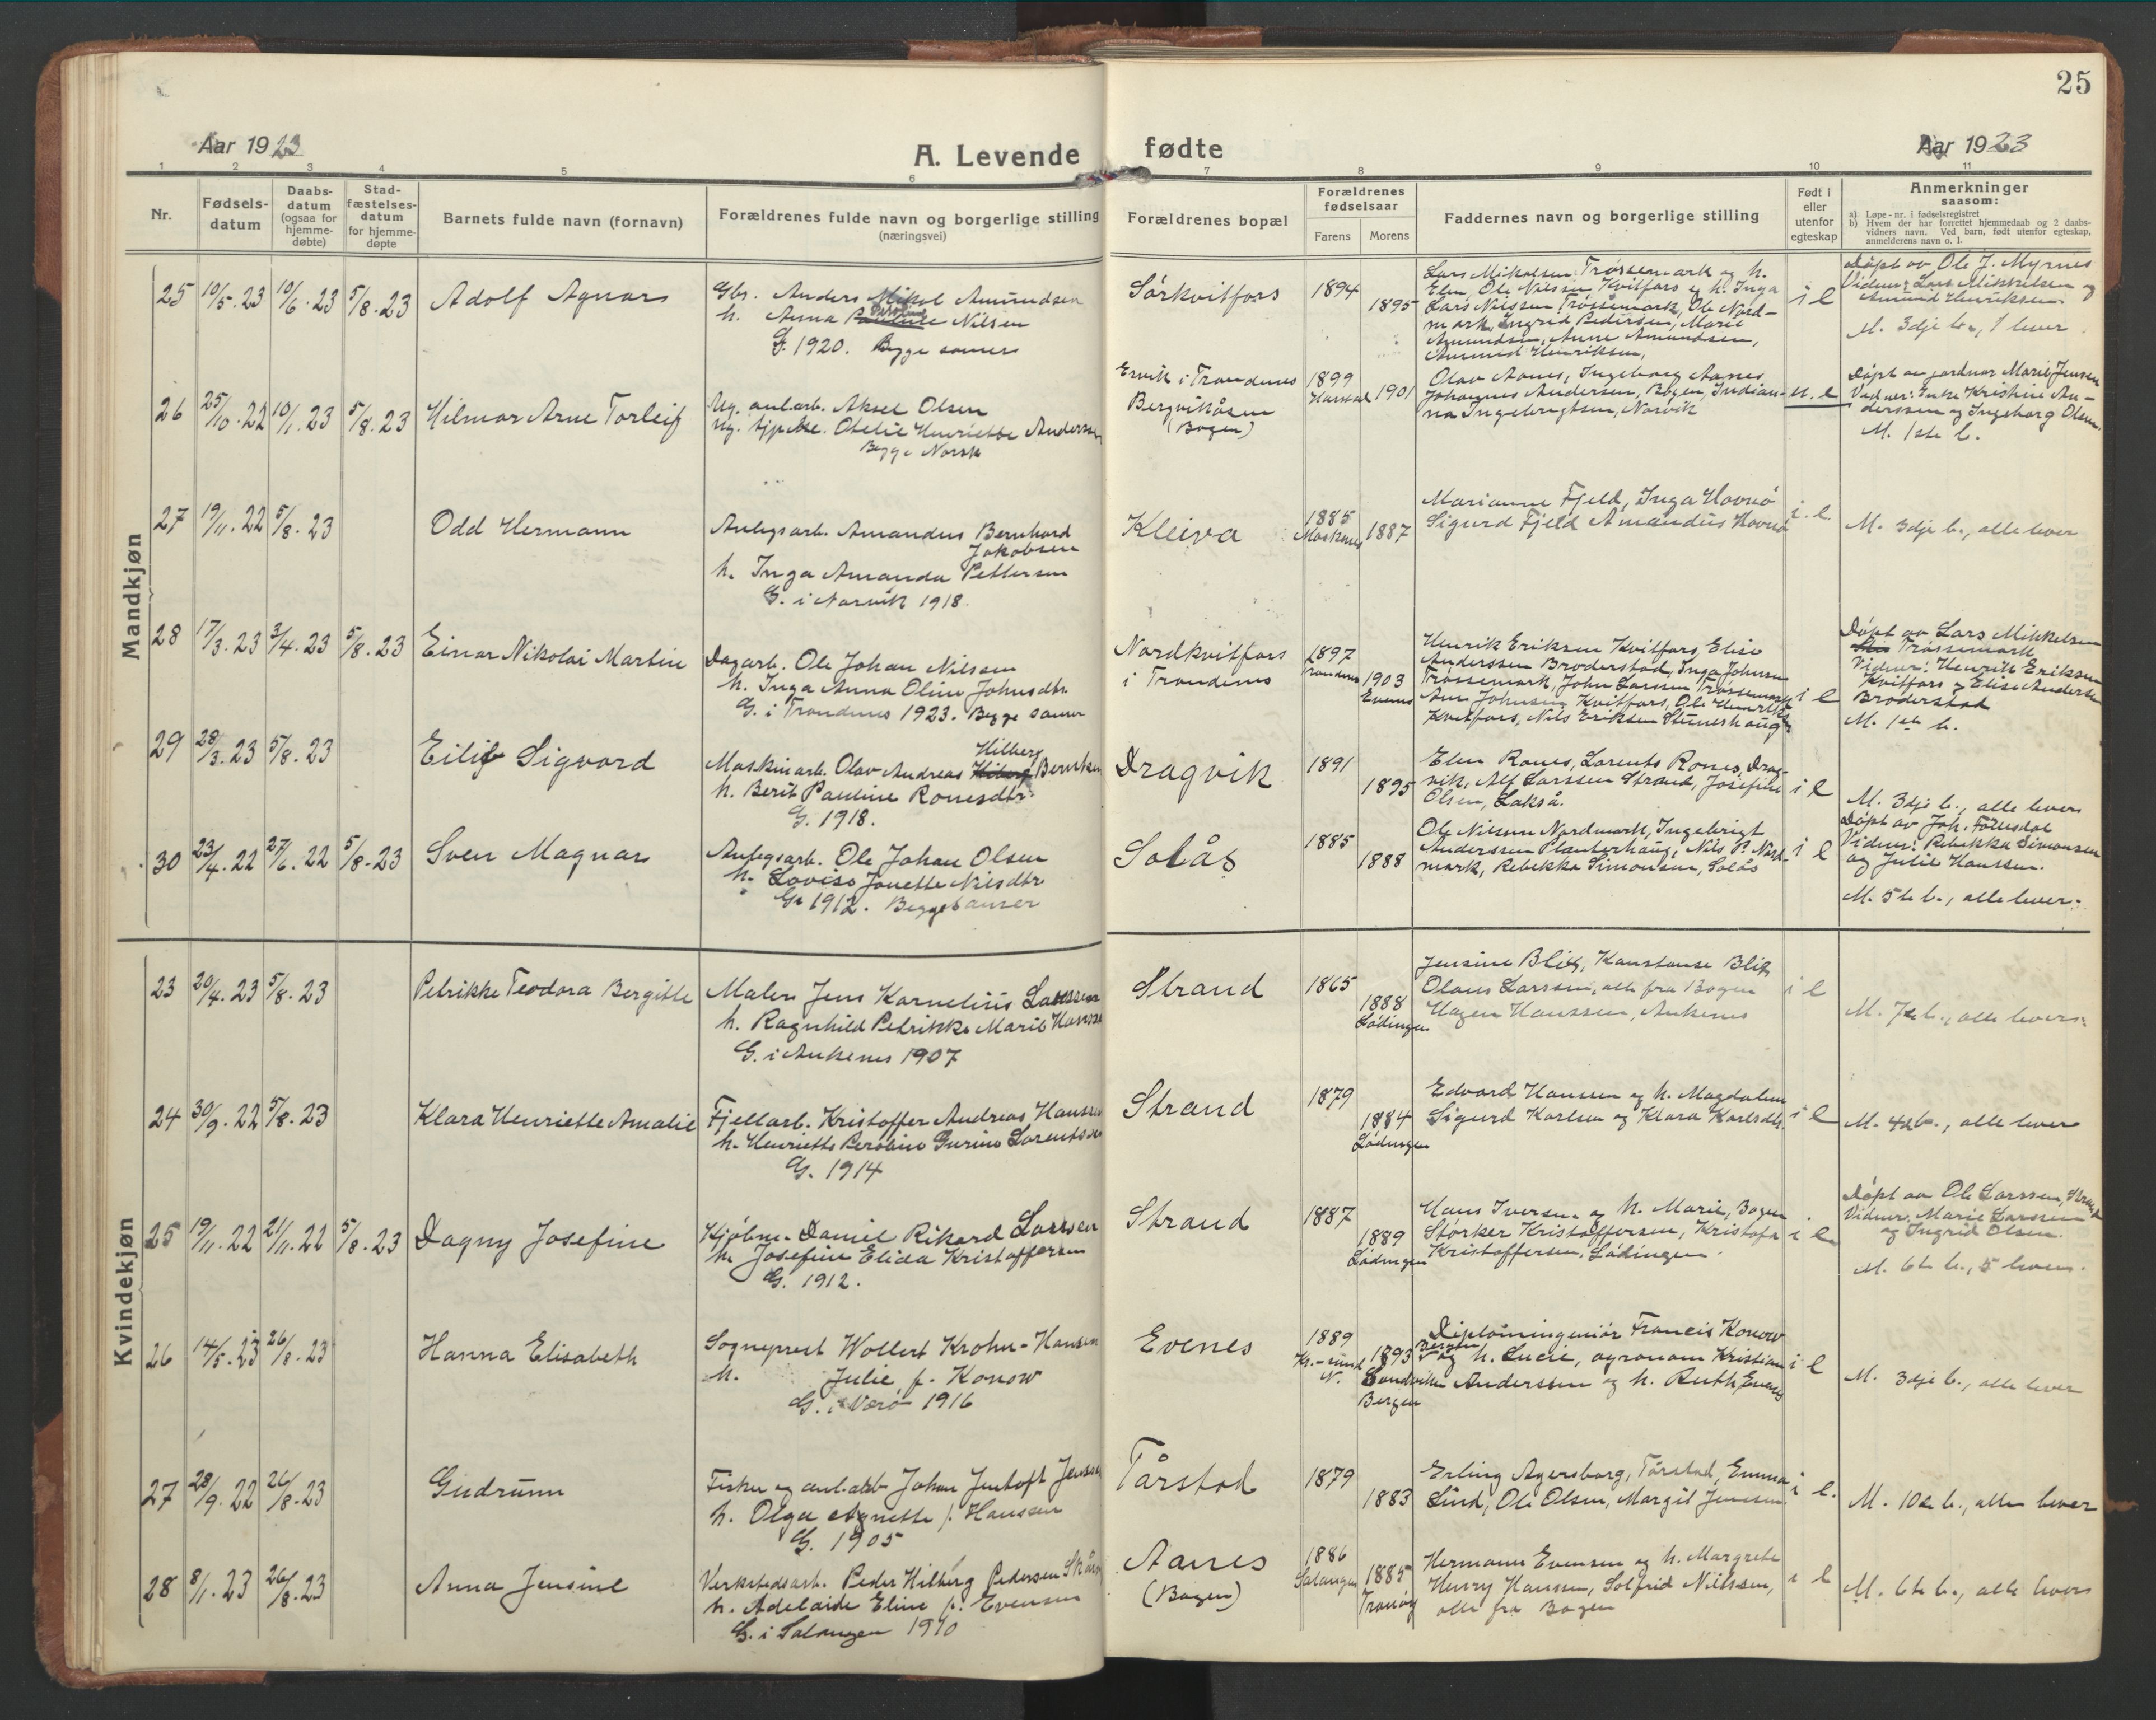 25
Aar 1923
A. Levende fødte
Aar 1923
1 2 3 4 5 6 7 8 9 10 11
Nr.
Fødsels-
datum
Daabs-
datum
(ogsaa for
hjemme-
døbte)
Stad-
fæstelses-
datum
for hjemme-
døpte
Barnets fulde navn (fornavn)
Forældrenes fulde navn og borgerlige stilling
(næringsvei)
Forældrenes bopæl
Forældrenes
fødselsaar
Farens Morens
Faddernes navn og borgerlige stilling
Født i
eller
utenfor
egteskap
Anmerkninger
saasom:
a) Løpe-nr. i fødselsregistret
b) Hvem der har forrettet hjemmedaab og 2 daabs-
vidners navn. Ved barn, født utenfor egteskap,
anmelderens navn o. l.
Mandkjøn
25 10/5.23 10/6.23 5/8.23 Adolf Agnar
Gbr. Anders Mikal Amundsen
h. Anna Nilsen
G. 1920. Begge samer
Sørkvitfors
1894
1895
Lars Mikalsen Trøssemark og h.
Elen, Ole Nilssen Kvitfors og h. Inga
Lars Nilssen Trøssemark, Ole Nord-
mark, Ingrid Pedersen, Marie
Amundsen, Anne Amundsen,
Amund Henriksen,
i e
Døpt av Ole J. Myrnes
Vidner: Lars Mikkelsen og
Amund Henriksen
M. 3dje b., 1 lever
26 25/10.22 10/1.23 5/8.23 Hilmar Arne Torleif
Ug. anl.arb. Aksel Olsen
Ug. tjpike. Otelie Henriette Anderssen
Begge Norsk
Ervik i Trondenes
Bergvikåsen
(Bogen)
1899
Harstad 1901
Olav Aanes, Ingeborg Aanes
Johannes Andersen, Bogen, Indian-
na Ingebrigtsen, Narvik
u. e
Døpt av jordmor Marie Jensen
Vidner: Enke Kristine An-
derssen og Ingeborg Olsen.
M. 1ste b.
27 19/11.22 5/8.23 Odd Hermann
Anlegsarb. Amandus Bernhard
Jakobsen
h. Inga Amanda Pettersen
G. i Narvik 1918.
Kleiva
1885
Moskenes 1887
Marianne Fjeld, Inga Hovnø
Sigurd Fjeld Amandus Hovnø
i e
M. 3dje b., alle lever
28 17/3.23 3/4.23 5/8.23 Einar Nikolai Martin
Dagarb. Ole Johan Nilssen
h. Inga Anna Oline Johnsdtr.
G. i Trondenes 1923. Begge samer
Nordkvitfors
i Trondenes
1897
Trondenes 1903
Evenes
Henrik Eriksen Kvitfors, Elise
Anderssen Broderstad, Inga Johnsen
Trøssemark, John Larssen Trøssemark
Ane Johnsen Kvitfors, Ole Henriksen
Kvitfors, Nils Eriksen
i e
Døpt av Lars Mikkelsen
Trøssemark
Vidner: Henrik Eriksen
Kvitfors og Elise Andersen
Broderstad
M. 1ste b.
29 28/3.23 5/8.23 Eilif Sigvard
Maskinarb. Olav Andreas Hilberg Berntsen
h. Berit Pauline Ronesdtr.
G. 1918.
Dragvik
1891
1895
Elen Rones, Lorents Rones, Drag-
vik, Alf Larssen Strand, Josefine
Olsen, Lakså.
i e
M. 3dje b., alle lever
30 23/4.22 27/6.22 5/8.23 Sven Magnar
Anlegsarb. Ole Johan Olsen
h. Lovise Jonette Nilsdtr.
G. 1912. Begge samer
Solås
1885
1888
Ole Nilssen Nordmark, Ingebrigt
Anderssen Planterhaug, Nils P. Nord-
mark, Rebekka Simonsen, Solås
i e
Døpt av Joh. Follesdal
Vidner: Rebekka Simonsen
og Julie Hanssen.
M. 5te b., alle lever.
Kvindekjøn
23 20/4.23 5/8.23 Petrikke Teodora Bergitte
Maler Jens Kornelius Larssen
h. Ragnhild Petrikke Marie Hanssen
G. i Ankenes 1907
Strand
1865
1888
Lødingen
Jensine Blix, Konstanse Blix
Olaus Larssen, alle fra Bogen
Hagen Hanssen, Ankenes
i e
M. 7de b., alle lever.
24 30/9.22 5/8.23 Klara Henriette Amalie
Fjellarb. Kristoffer Andreas Hanssen
h. Henriette Gurine Lorentsen
G. 1914
Strand
1879
1884
Lødingen
Edvard Hansen og h. Magdalene
Sigurd Karlsen og Klara Karlsdtr.
i e
M. 4de b., alle lever
25 19/11.22 21/11.22 5/8.23 Dagny Josefine
Kjøbm. Daniel Rikard Larssen
h. Josefine Elida Kristoffersen
G. 1912.
Strand
1887
1889
Lødingen
Hans Iversen og h. Marie, Bogen
Størker Kristoffersen, Kristofa
Kristoffersen, Lødingen
i e
Døpt av Ole Larssen, Strand
Vidner: Marie Larssen
og Ingrid Olsen.
M. 6te b., 5 lever.
26 14/5.23 26/8.23 Hanna Elisabeth
Sogneprest Wollert Krohn-Hansen
h. Julie, f. Konow
G. i Værø 1916
Evenes
1889
Kr.-sund
N.
1893
Bergen
Diplomingeniør Francis Konow
Bergen og h. Lucie, agronom Kristian
Anderssen og h. Ruth, Evenes
i e
M. 3dje b., alle lever
27 28/9.22 26/8.23 Gudrunn
Fisker og anl.arb. Johan Jentoft Jenssen
h. Olga Agnette f. Hanssen
G. 1905
Tårstad
1879
1883
Erling Agersborg, Tårstad, Emma
Lind, Ole Olsen, Margit Jenssen
i e.
M. 10de b., alle lever
28 8/1.23 26/8.23 Anna Jensine
Verkstedsarb. Peder Hilberg Pedersen
h. Adelaide Eline f. Evensen
G. i Salangen 1910
Aanes
(Bogen)
1886
Salangen
1885
Tranøy
Hermann Evensen og h. Margrete
Henry Hanssen, Solfrid Nilssen,
alle fra Bogen
i e
M. 6te b., alle lever